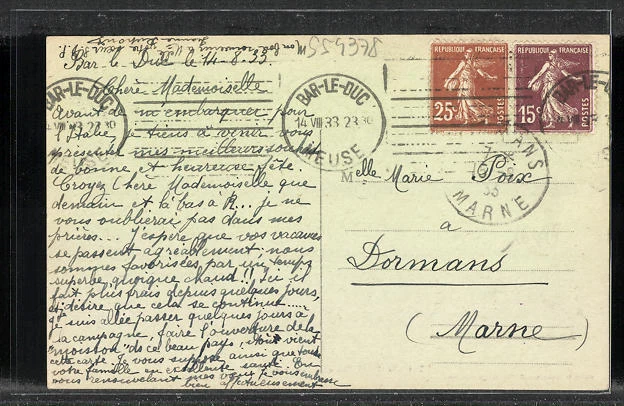 959378
Bar le Duc le 14.8.33
Chère Mademoiselle
Avant de m'embarquer pour
je tiens à venir vous
présenter mes meilleurs souhaits
de bonne et heureuse fête.
Croyez Chère Mademoiselle que
demain et là bas à R... je ne
vous oublierai pas dans mes
prières... J'espère que vos vacances
se passent agréablement; nous
sommes favorisées par un temps
superbe, quoique chaud!! Ici il
fait plus frais depuis quelques jours,
je désire que cela se continue.....
Je suis allée passer quelques jours à
la campagne, faire l'ouverture de la
"moisson" de ce beau pays, d'où vient
cette carte. Je vous suppose ainsi que toute
votre famille en excellente santé. En
vous renouvelant mes vœux je vous embrasse
bien affectueusement
BAR-LE-DUC
14 VIII 33 23 30
MEUSE
BAR-LE-DUC
14 VIII 33 23 30
MEUSE
REPUBLIQUE FRANÇAISE
25c
POSTES
REPUBLIQUE FRANÇAISE
15c
POSTES
BAR-LE-DUC
DORMANS
MARNE
Melle Marie Poix
à
Dormans
(Marne)